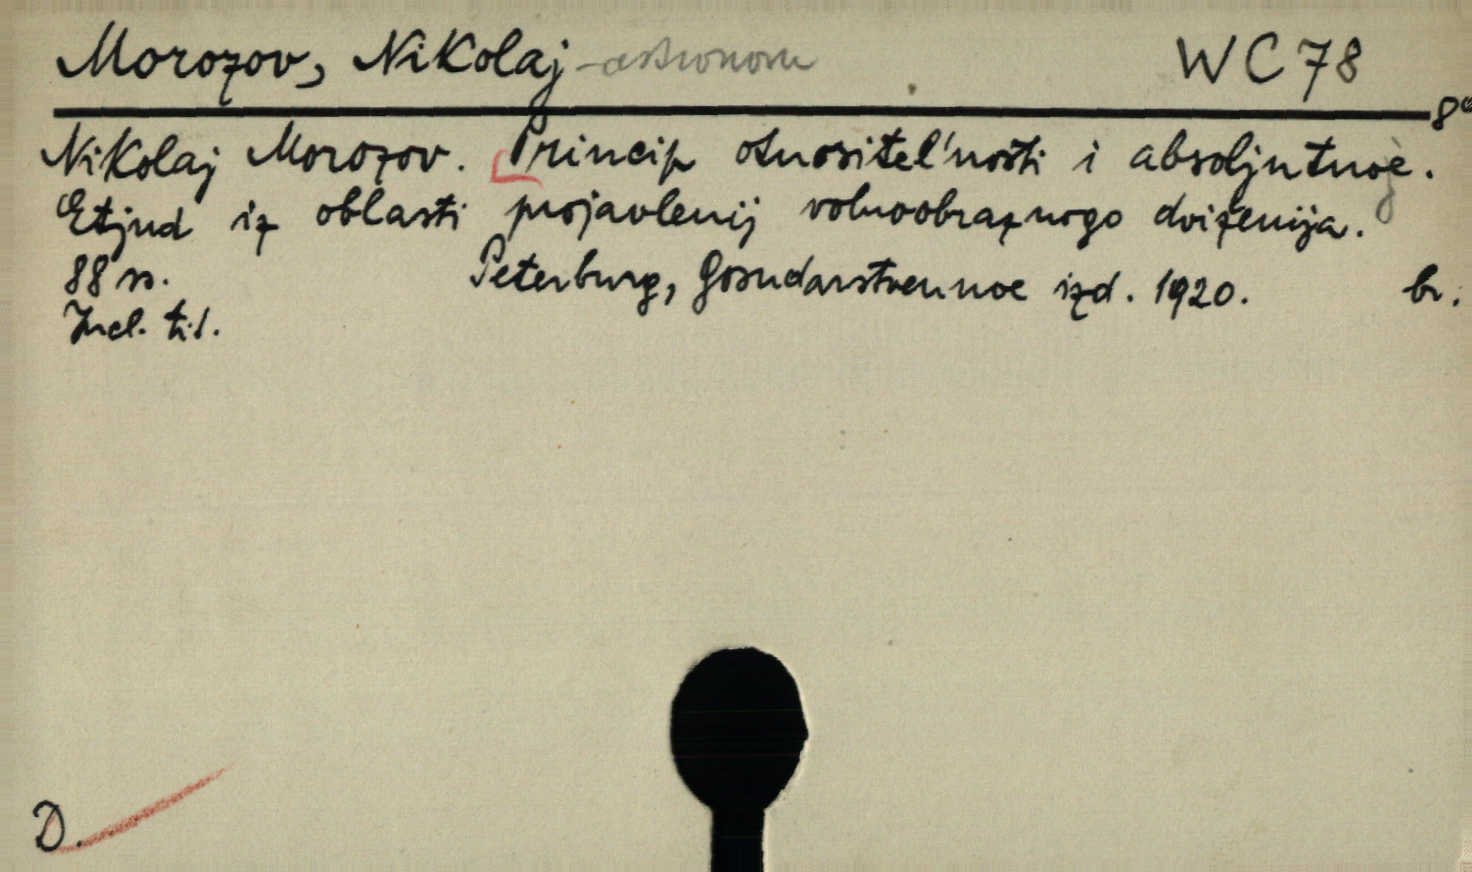 Morozov, Nikolaj - astronom WC 78
8°
Nikolaj Morozov. Princip otnositel'nosti i absoljutnoe.
Etjud iz oblasti projavlenij volnoobraznogo dviženija.
88 s. Peterburg, Gosudarstvennoe izd. 1920. br.
Incl. tit.
D.